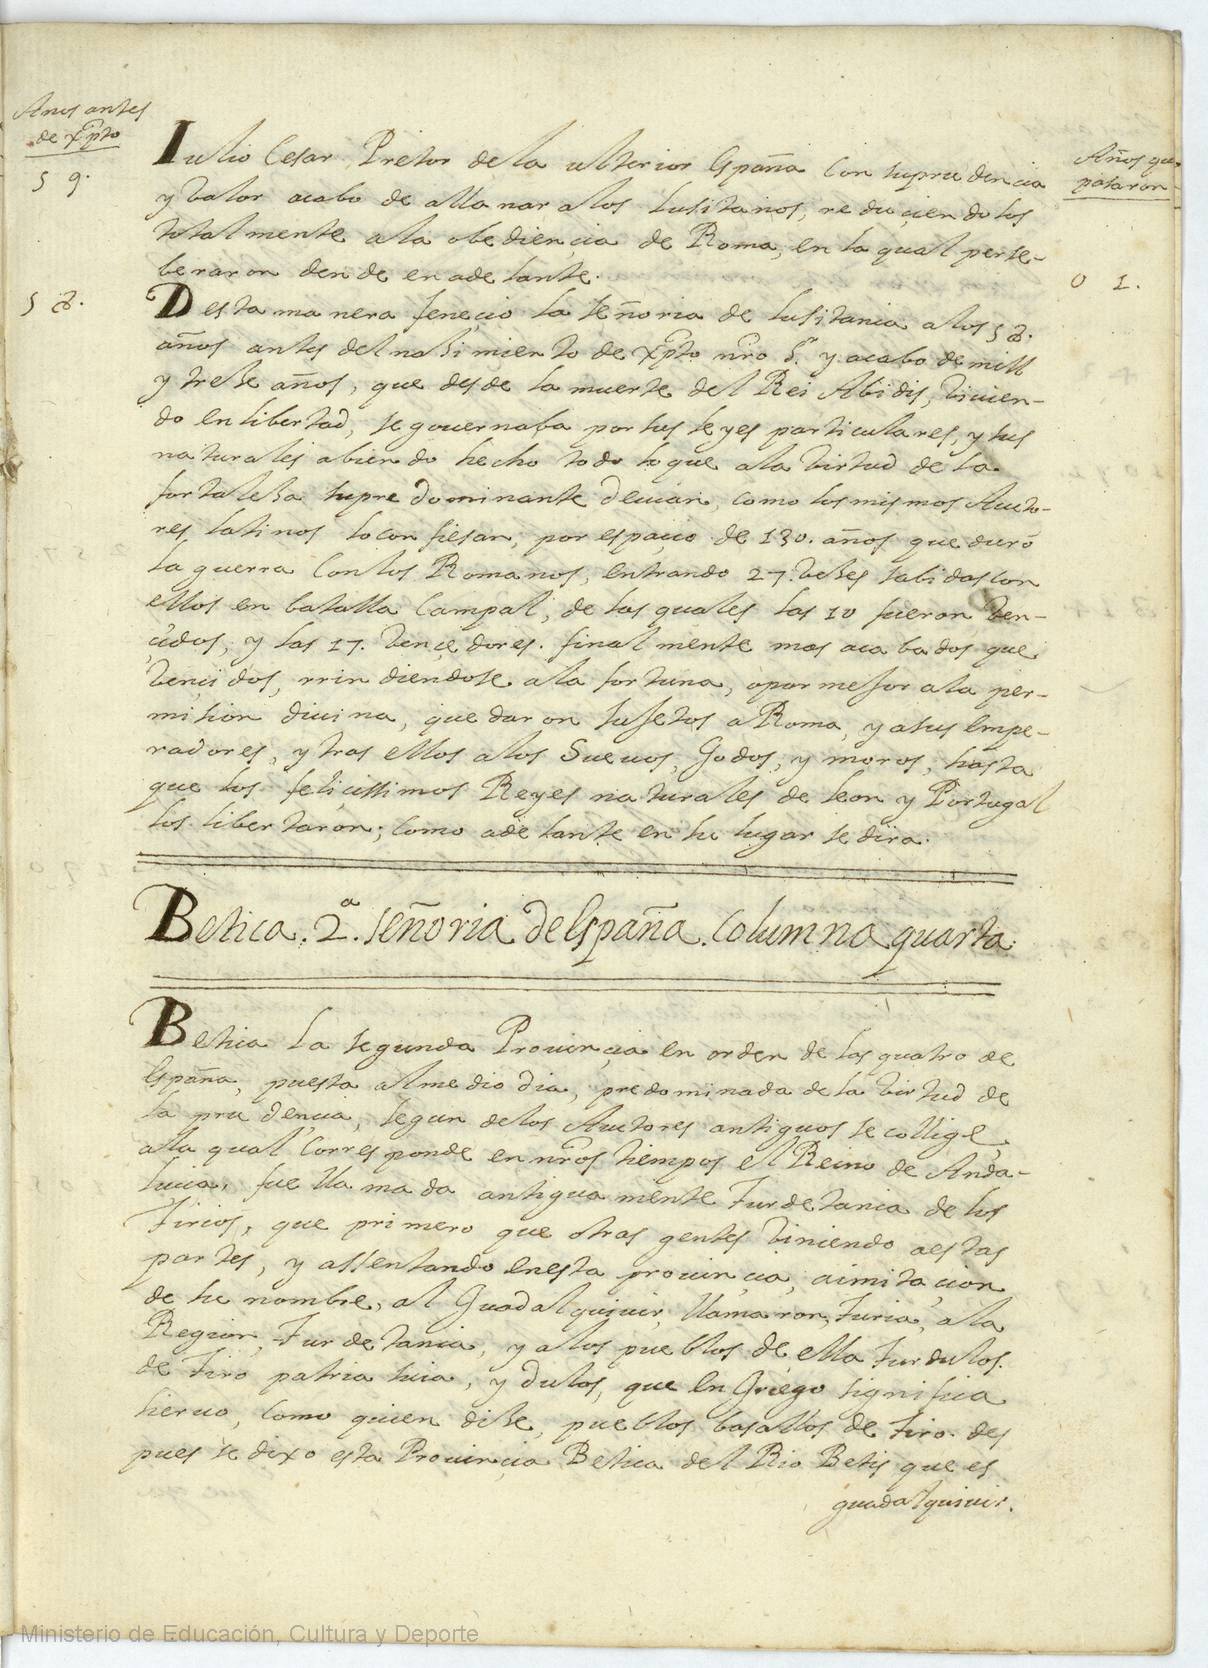 Años antes
de xp̃to
59.
Años que
pasaron
Iulio Cesar Pretor de la ulterior España con su prudencia
y balor acabo de allanar alos Lusitanos, reduçiendolos
totalmente ala obediençia de Roma, en la qual perse-
beraron dende en adelante.
01.
58.
Desta manera feneçio la señoria de Lusitania alos 58.
años antes del nasimiento de xp̃to nr̃o S.r y acabo de mill
y trese años, que desde la muerte del Rei Abidis, viuien-
do en libertad, se gouernaba por sus leyes particulares, y sus
naturales abiendo hecho todo loque ala virtud de la
fortalesa su predominante deuian, como los mismos Aucto-
res latinos lo confiesan, por espaçio de 130. años que duró
la guerra con los Romanos, entrando 27. veses sabidas con
ellos en batalla campal, de las quales las 10 fueron ven-
çidos, y las 17. vençedores. finalmente mas acabados que
vençidos, rrindiendose ala fortuna, o por mejor ala per-
mision diuina, quedaron sujetos a Roma, y asus Empe-
radores, y tras ellos alos Sueuos, Godos, y moros, hasta
que los feliçissimos Reyes naturales de Leon y Portugal
los libertaron; como adelante en su lugar se dira.
Betica. 2.a señoria de España. Columna quarta.
Betica la segunda Prouinçia en orden de las quatro de
España, puesta al medio dia, predominada de la virtud de
la prudençia, segun delos Auctores antiguos se collige,
ala qual corresponde en nr̃os tiempos el Reino de Anda-
luçia, fue llamada antiguamente Turdetania de los
Tirios, que primero que otras gentes viniendo aestas
partes, y assentando enesta prouinçia, aimitaçion
de su nombre, al Guadalquiuir llamaron, Turia, ala
Region, Turdetania, y alos pueblos de ella Turdulos.
de Tiro patria suia, y dulos, que en Griego significa
sieruo, como quien dise, pueblos basallos de Tiro. des
pues se dixo esta Prouinçia Betica del Rio Betis que es
guadalquiuir.
Ministerio de Educación, Cultura y Deporte